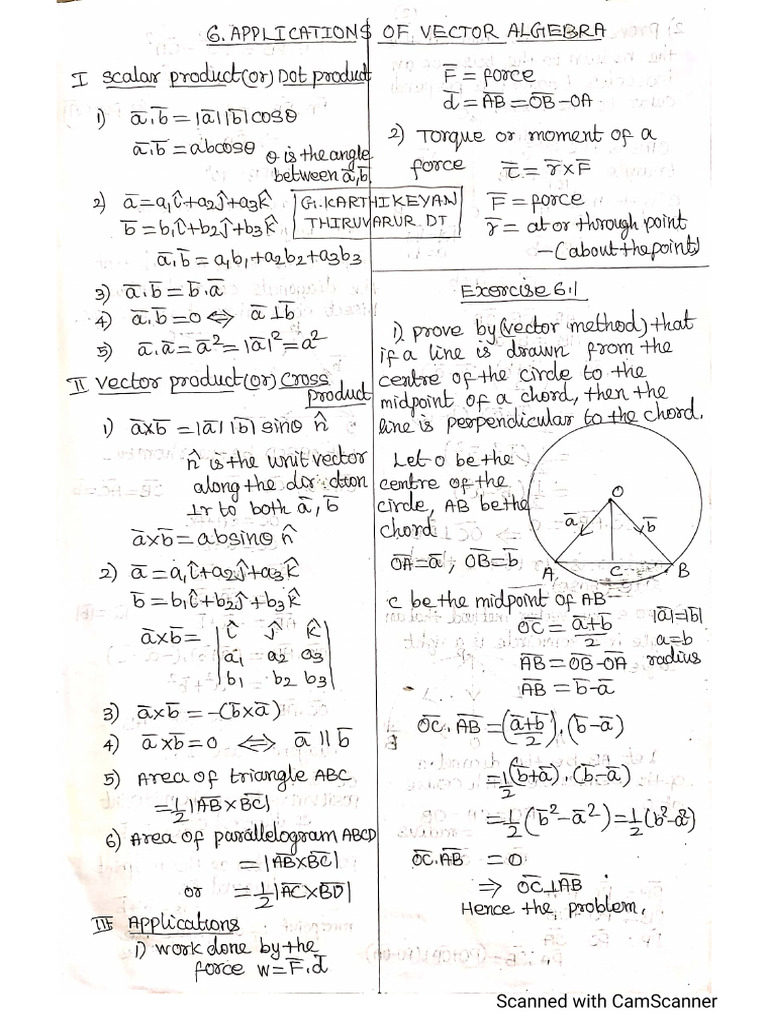 6. APPLICATIONS OF VECTOR ALGEBRA
I Scalar product (or) Dot product
1) a̅.b̅ = |a̅||b̅|cosθ
a̅.b̅ = abcosθ θ is the angle
between a̅,b̅
2) a̅ = a₁î+a₂ĵ+a₃k̂
b̅ = b₁î+b₂ĵ+b₃k̂
G.KARTHIKEYAN
THIRUVARUR DT
a̅.b̅ = a₁b₁+a₂b₂+a₃b₃
3) a̅.b̅ = b̅.a̅
4) a̅.b̅ = 0 ⇔ a̅⊥b̅
5) a̅.a̅ = a̅² = |a̅|² = a²
II Vector product (or) Cross
product
1) a̅×b̅ = |a̅||b̅|sinθ n̂
n̂ is the unit vector
along the dir:ction
⊥r to both a̅,b̅
a̅×b̅ = absinθ n̂
2) a̅ = a₁î+a₂ĵ+a₃k̂
b̅ = b₁î+b₂ĵ+b₃k̂
a̅×b̅ = | î ĵ k̂
a₁ a₂ a₃
b₁ b₂ b₃ |
3) a̅×b̅ = -(b̅×a̅)
4) a̅×b̅ = 0 ⇔ a̅ ∥ b̅
5) Area of triangle ABC
= 1/2 |A̅B̅×B̅C̅|
6) Area of parallelogram ABCD
= |A̅B̅×B̅C̅|
or = 1/2 |A̅C̅×B̅D̅|
III Applications
1) work done by the
force w = F̅.d̅
F̅ = force
d̅ = A̅B̅ = O̅B̅-OA
2) Torque or moment of a
force τ̅ = r̅×F̅
F̅ = force
r̅ = at or through point
-(about the point)
Exercise 6.1
1) prove by (vector method) that
if a line is drawn from the
centre of the circle to the
midpoint of a chord, then the
line is perpendicular to the chord.
Let O be the
centre of the
circle, AB be the
chord
O̅A̅ = a̅, O̅B̅ = b̅
O
a̅ b̅
A C B
C be the midpoint of AB
O̅C̅ = (a̅+b̅)/2 |a̅|=|b̅|
a=b
A̅B̅ = O̅B̅-O̅A̅ radius
A̅B̅ = b̅-a̅
O̅C̅.A̅B̅ = ((a̅+b̅)/2).(b̅-a̅)
= 1/2 (b̅+a̅).(b̅-a̅)
= 1/2 (b̅²-a̅²) = 1/2 (b²-a²)
O̅C̅.A̅B̅ = 0
⇒ O̅C̅⊥A̅B̅
Hence the problem.
Scanned with CamScanner